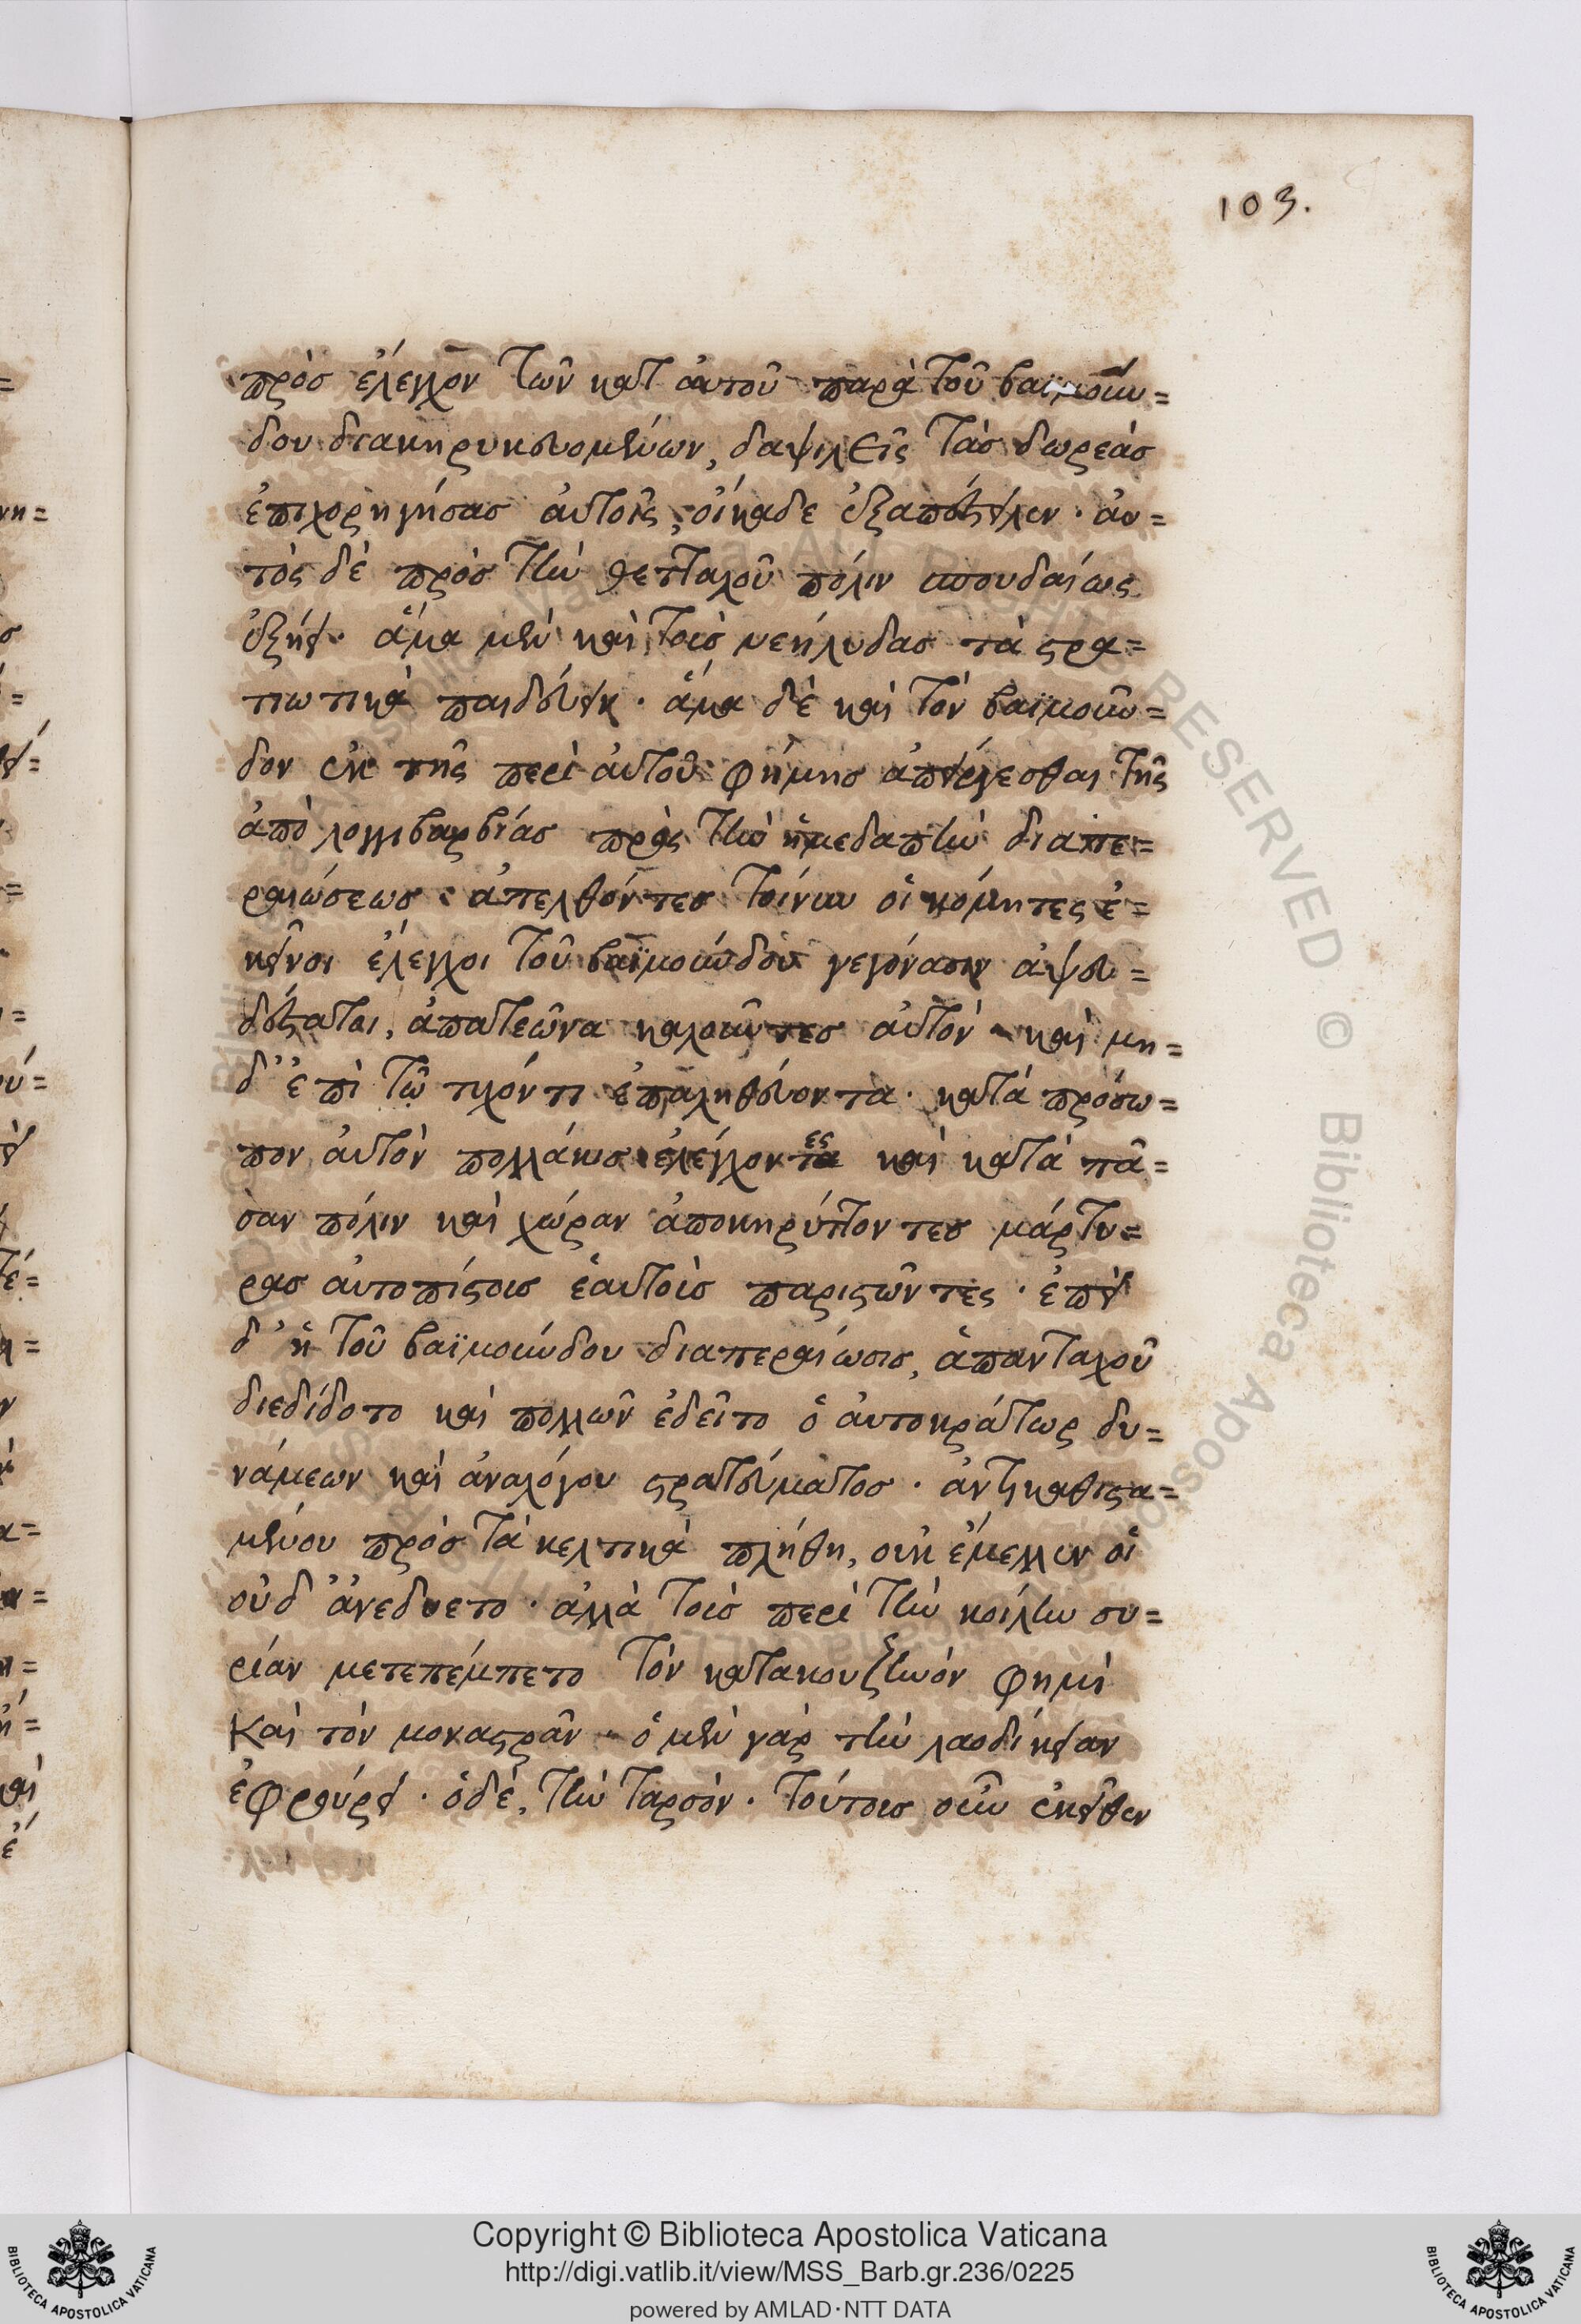 103.
πρὸς ἔλεγχον τῶν κατ αὐτοῦ παρὰ τοῦ βαϊμούν=
δου διακηρυκευομένων, δαψιλεῖς τὰς δωρεὰς
ἐπιχορηγήσας αὐτοῖς, οἴκαδε ἐξαπέστειλεν · αὐ=
τὸς δὲ πρὸς τὴν θετταλοῦ πόλιν σπουδαίως
ἐξήει · ἅμα μὲν καὶ τοὺς νεήλυδας τὰ στρα=
τιωτικὰ παιδεύειν · ἅμα δὲ καὶ τὸν βαϊμοῦν=
δον ἐκ τῆς περὶ αὐτοῦ φήμης ἀπείργεσθαι τῆς
ἀπὸ λογγιβαρβίας πρὸς τὴν ἡμεδαπὴν διαπε=
ραιώσεως · ἀπελθόντες τοίνυν οἱ κόμητες ἐ=
κεῖνοι ἔλεγχοι τοῦ βαϊμούνδου γεγόνασιν ἀψευ=
δέστατοι, ἀπατεῶνα καλοῦντες αὐτὸν καὶ μη=
δ' ἐπὶ τῷ τυχόντι ἐπαληθεύοντα · κατὰ πρόσω=
πον αὐτὸν πολλάκις ἐλέγχοντες καὶ κατὰ πᾶ=
σαν πόλιν καὶ χώραν ἀποκηρύττοντες μάρτυ=
ρας αὐτοπίστους ἑαυτοὺς παριστῶντες · ἐπεὶ
δ' ἡ τοῦ βαϊμούνδου διαπεραίωσις, ἁπανταχοῦ
διεδίδοτο καὶ πολλῶν ἐδεῖτο ὁ αὐτοκράτωρ δυ=
νάμεων καὶ ἀναλόγου στρατεύματος · ἀντικαθιστα=
μένου πρὸς τὰ κελτικὰ πλήθη, οὐκ ἔμελλεν οἱ
οὐδ' ἀνεδύετο · ἀλλὰ τοὺς περὶ τὴν κοίλην συ=
ρίαν μετεπέμπετο τὸν κατακουζηνόν φημὶ
καὶ τὸν μοναστρᾶν · ὁ μὲν γὰρ τὴν λαοδίκειαν
ἐφρούρει · ὁ δὲ, τὴν ταρσόν · τούτους οὖν ἐκεῖθεν
Copyright © Biblioteca Apostolica Vaticana
http://digi.vatlib.it/view/MSS_Barb.gr.236/0225
powered by AMLAD·NTT DATA